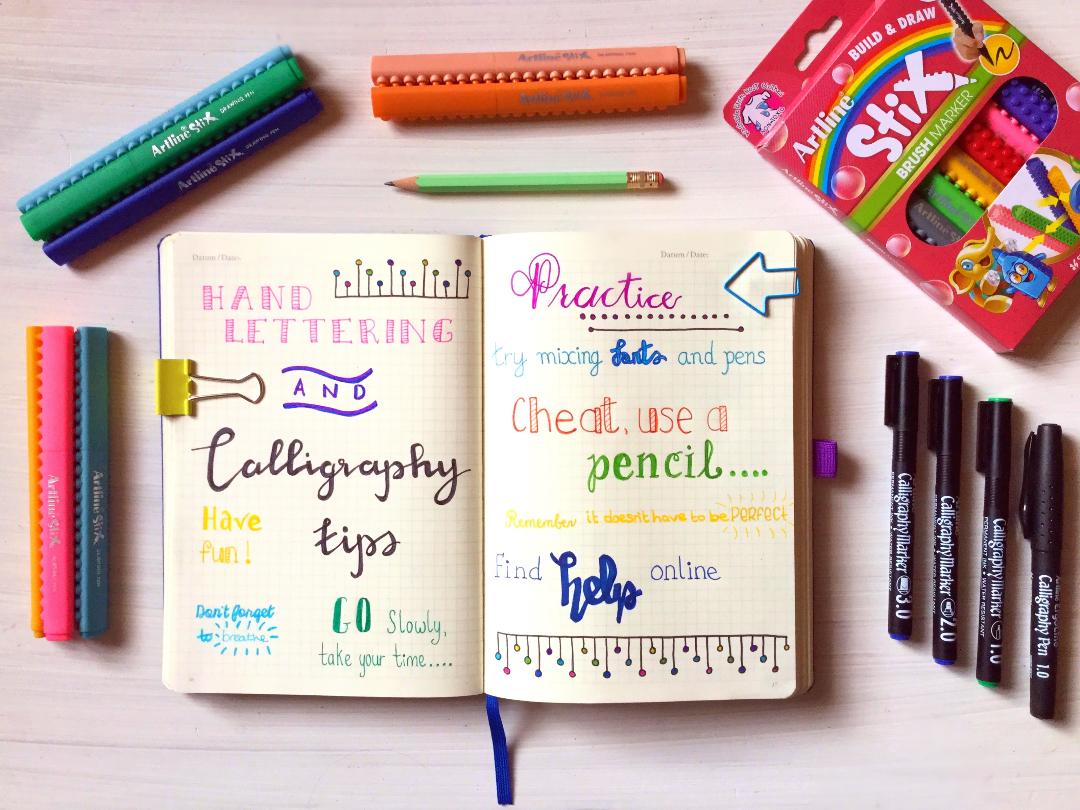 Artline Stix DRAWING PEN
Artline Stix DRAWING PEN
Artline Stix
Artline Stix
BUILD & DRAW
Artline
Stix
BRUSH MARKER
Artline Stix
Artline Stix
Datum / Date:
HAND
LETTERING
AND
Calligraphy
Have
fun!
tips
Don't forget
to breathe
GO Slowly,
take your time....
Datum / Date:
Practice
try mixing fonts and pens
Cheat, use a
pencil....
Remember it doesn't have to be PERFECT
Find help online
Artline Stix
Artline Stix
CalligraphyMarker 3.0
CalligraphyMarker 2.0
CalligraphyMarker 1.0
PERMANENT INK • WATER RESISTANT
Calligraphy Pen 1.0